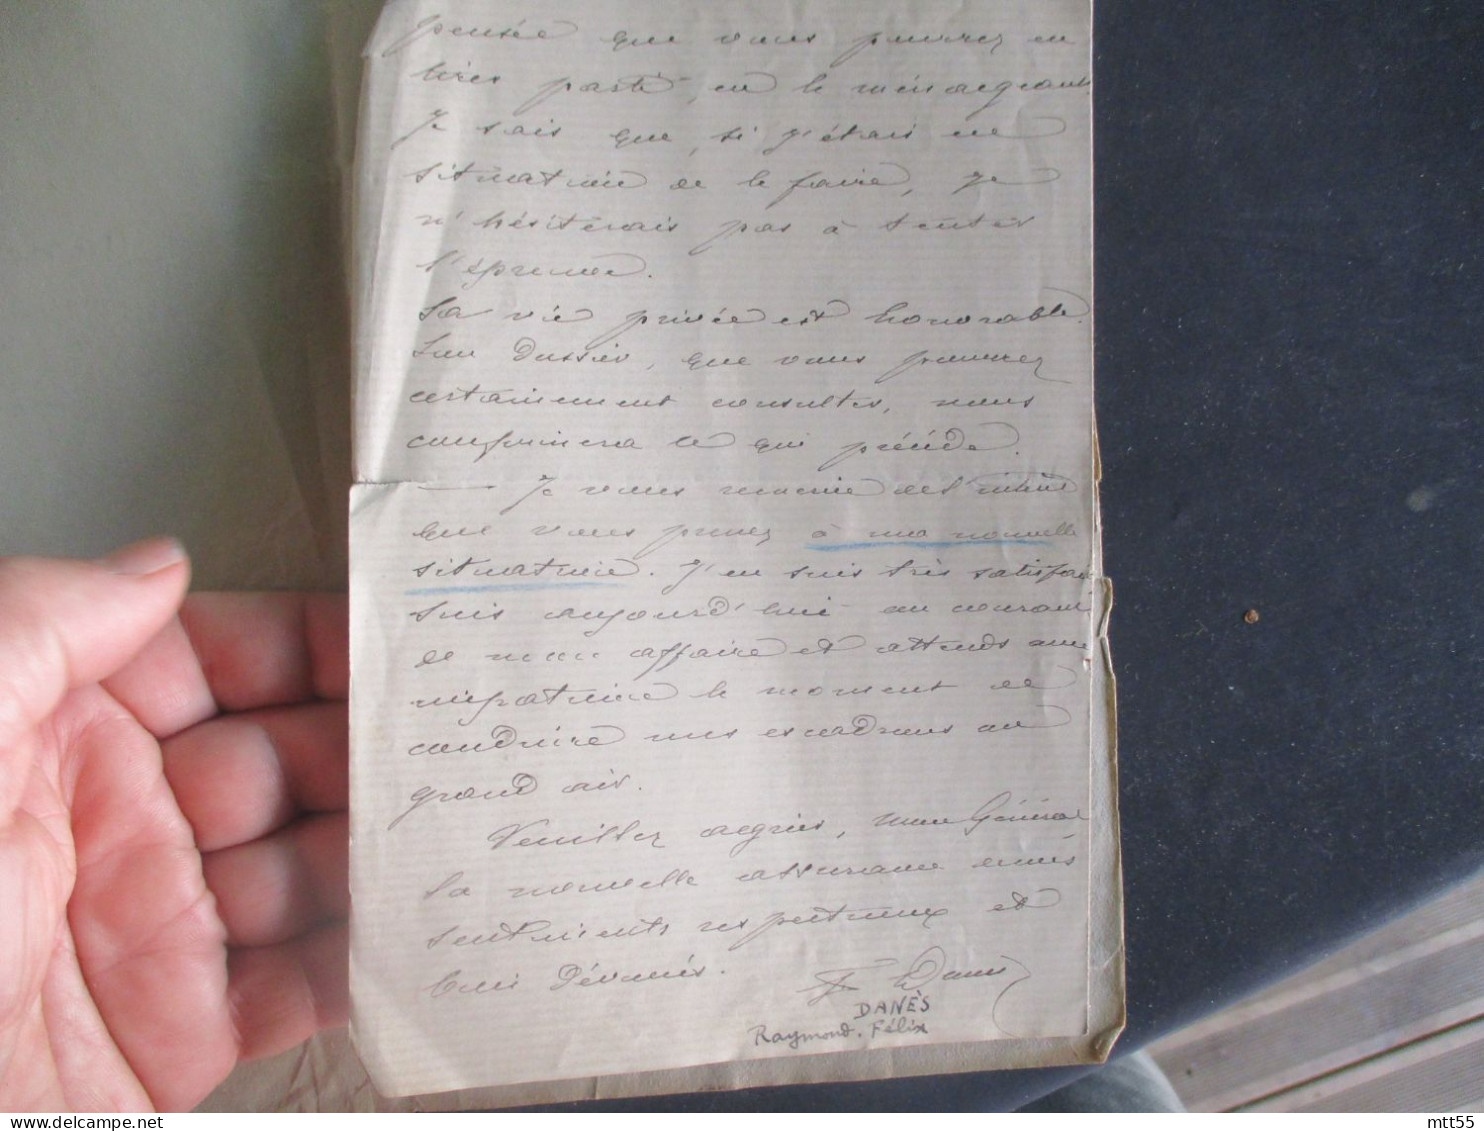 pensée que vous pourrez en
tirer parti, en le ménageant.
Je sais que, si j'étais en
situation de le faire, je
n'hésiterais pas à tenter
l'épreuve.
Sa vie privée est honorable.
Son dossier, que vous pourrez
certainement consulter, vous
confirmera ce qui précède.
— Je vous remercie de l'intérêt
que vous prenez à ma nouvelle
situation. J'en suis très satisfait
suis aujourd'hui au courant
de mon affaire et attends avec
impatience le moment de
conduire mes escadrons au
grand air.
Veuillez agréer, mon Général
la nouvelle assurance de mes
sentiments respectueux et
bien dévoués.
F Danès
DANÈS
Raymond. Félix
mtt55